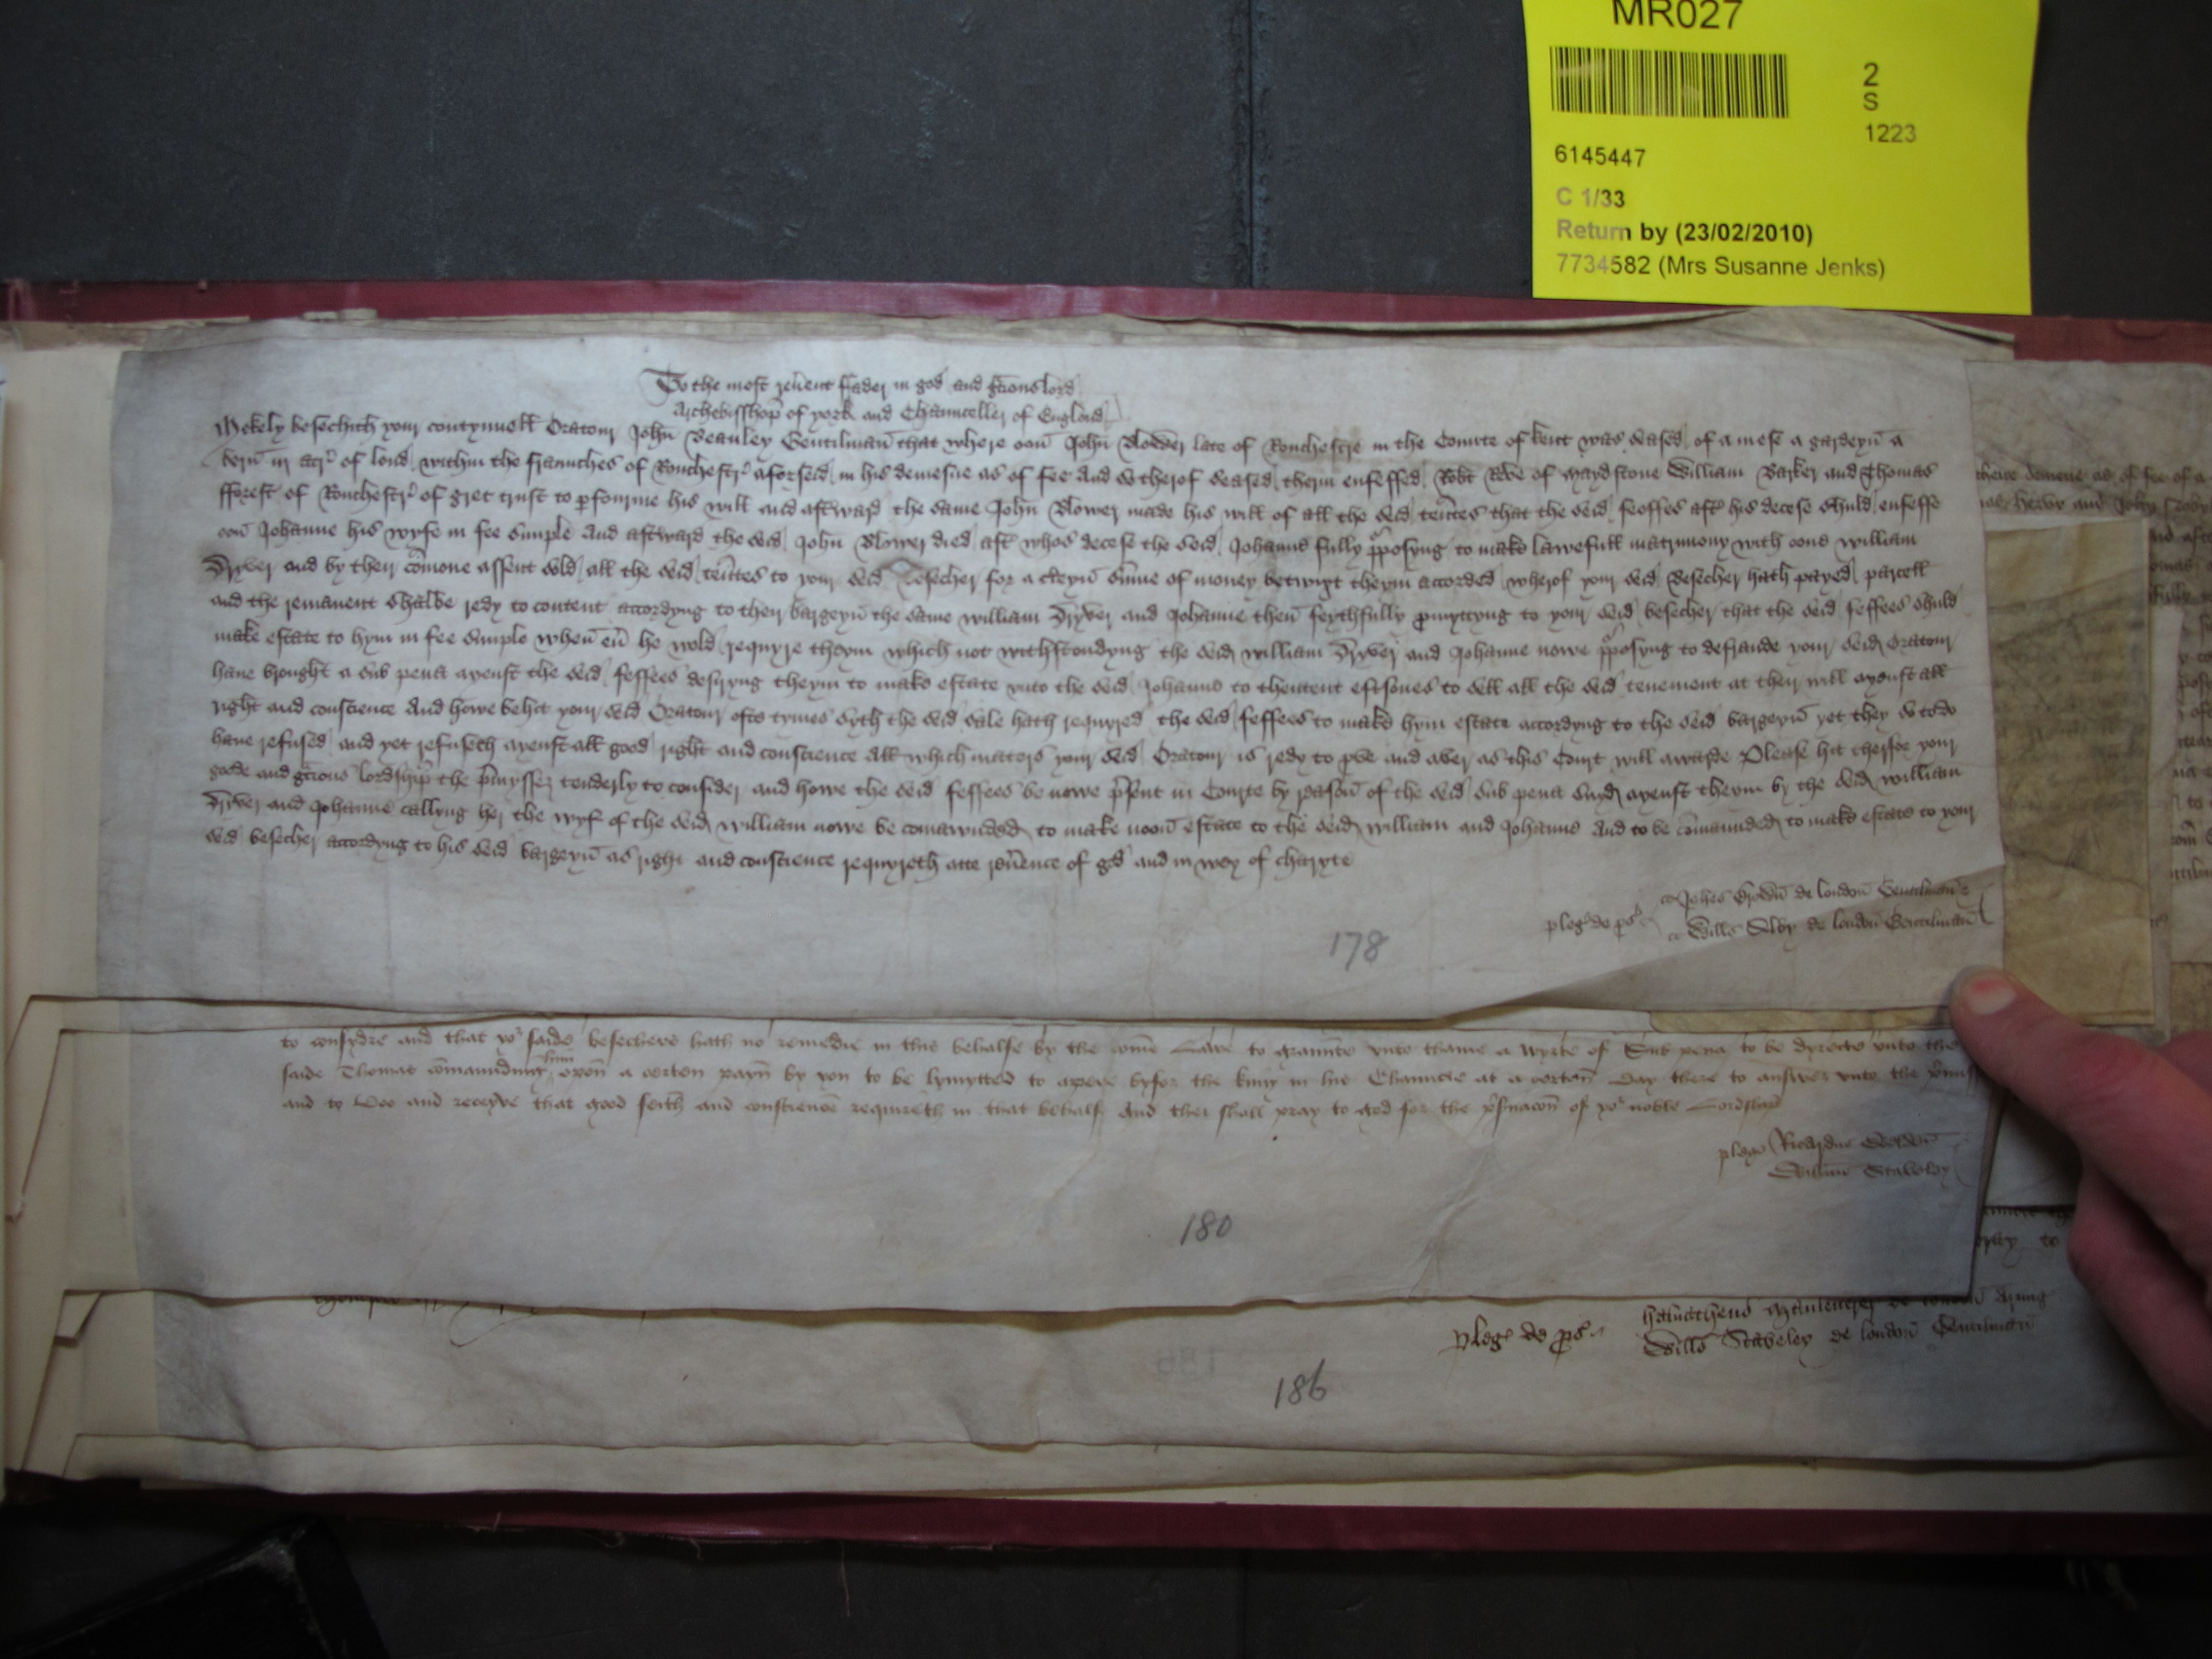 MR027
2
S
1223
6145447
C 1/33
Return by (23/02/2010)
7734582 (Mrs Susanne Jenks)
To the most reu'ent ffader in god and gr̃cious lord
Archebisshop̃ of york and Chaunceller of Englond
Mekely besechith your contynuell Oratour John̄ Beauley Gentilman̄ that where oon̄ John̄ Blower late of Rouchestre in the Counte of kent was seased of a mese a gardeyn̄ a
bern̄ iij acr' of lond within the fraunches of Rouchestr' aforseid in his demesne as of fee And so therof seased therin enfeffed Rob't of Maydstone William Barker and Thomas
fforest of Rouchestr' of gret trust to p̱fourme his will and aft'ward the same John̄ Blower made his will of all the seid ten'tes that the seid feoffes aft' his decese shuld enfeffe
oon̄ Johanne his wyfe in fee simple And aft'ward the seid John̄ Blower died aft' whos decese the seid Johanne fully p̱posyng to make lawefull matrimony with oone William
Dryver and by their cōmone assent sold all the seid ten'tes to your seid besecher for a c'teyn̄ sūme of money betwixt theym accorded wherof your seid besecher hath payed parcell
and the remanent shalbe redy to content accordyng to their bargeyn̄ the same William Dryver and Johanne then̄ feythfully p̱myttyng to your seid besecher that the seid feffees shuld
make estate to hym in fee simple when̄ eu' he wold requyre theym which not withstondyng the seid William Dryver and Johanne nowe p̱posyng to defraude your seid Oratour
haue brought a sub pena ayenst the seid feffees desiryng theym to make estate vnto the seid Johanne to thentent eftsones to sell all the seid tenement at their will ayenst all
right and conscience And howe behit your seid Oratour ofte tymes syth the seid sale hath requyred the seid feffees to make hym estate accordyng to the seid bargeyn̄ yet they so to do
haue refused and yet refuseth ayenst all good right and conscience All which maters your seid Oratour is redy to p̱ve and aver as this Court will awarde Please hit therfor your
gode and gr̃cious lordship̃ the p'mysses tenderly to consider and howe the seid feffees be nowe p'sent in Courte by reason̄ of the seid sub pena ayenst theym by the seid William
Dryver and Johanne callyng her the wyf of the seid William nowe be comaunded to make noon̄ estate to the seid William and Johanne And to be cōmaunded to make estate to your
seid besecher accordyng to his seid bargeyn̄ as right and conscience requyreth atte reu'ence of god and in wey of charyte
pleg' de p̱s'
Joh'es Brown̄ de london̄ Gentilman̄
Will's Alby de london̄ Gentilman̄
178
to consydre and that yo' saide besechers hath no remedie in this behalfe by the com̄e Lawe to graunte vnto thame a wryte of Sub pena to be dyrecte vnto the
saide Thomas cōmaundyng hym opon̄ a certen payn̄ by you to be lymytted to apere byfor the kyng in his Chauncre at a certen̄ day there to answer vnto the
and to doo and receyve that good feith and conscience requireth in that behalf And thei shall pray to god for the of yo' noble Lordship
pleg'
Ricardus
Willm̄ Staveley
180
pleg' de p̱s'
Will's Staveley de london̄ Gentilman̄
186